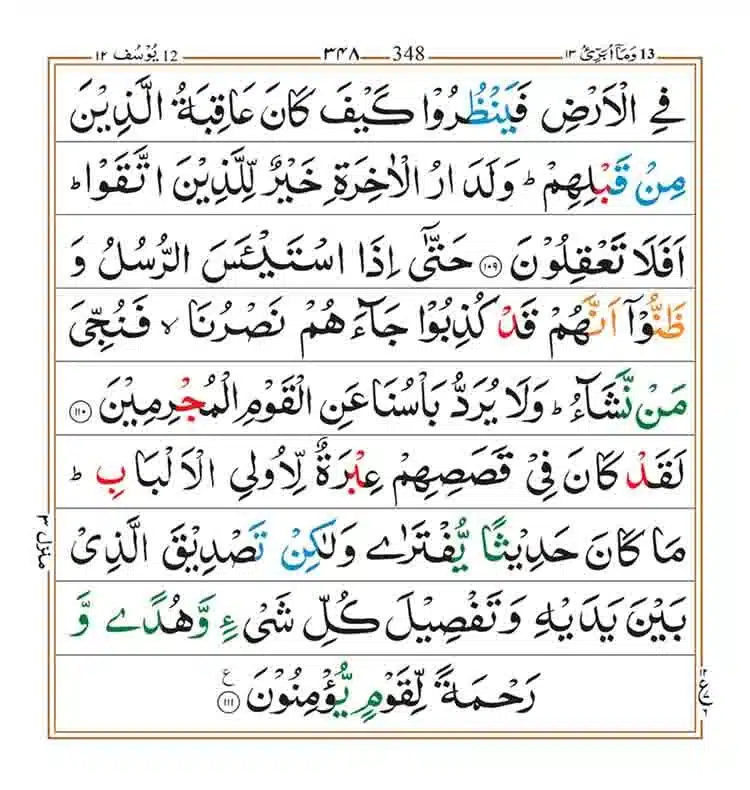 13 وَمَآ اُبَرِّئُ ١٣ 348 ٣٤٨ 12 يُوْسُف ١٢
فِي الْاَرْضِ فَيَنْظُرُوْا كَيْفَ كَانَ عَاقِبَةُ الَّذِيْنَ
مِنْ قَبْلِهِمْ ؕ وَلَدَارُ الْاٰخِرَةِ خَيْرٌ لِّلَّذِيْنَ اتَّقَوْا ؕ
اَفَلَا تَعْقِلُوْنَ ١٠٩ حَتّٰٓى اِذَا اسْتَيْئَسَ الرُّسُلُ وَ
ظَنُّوْٓا اَنَّهُمْ قَدْ كُذِبُوْا جَآءَهُمْ نَصْرُنَا ۙ فَنُجِّىَ
مَنْ نَّشَآءُ ؕ وَلَا يُرَدُّ بَاْسُنَا عَنِ الْقَوْمِ الْمُجْرِمِيْنَ ١١٠
لَقَدْ كَانَ فِيْ قَصَصِهِمْ عِبْرَةٌ لِّاُولِي الْاَلْبَابِ ؕ
مَا كَانَ حَدِيْثًا يُّفْتَرٰى وَلٰكِنْ تَصْدِيْقَ الَّذِىْ
بَيْنَ يَدَيْهِ وَتَفْصِيْلَ كُلِّ شَىْءٍ وَّهُدًى وَّ
رَحْمَةً لِّقَوْمٍ يُّؤْمِنُوْنَ ١١١ ع
منزل ٣
١٢ ع ٦